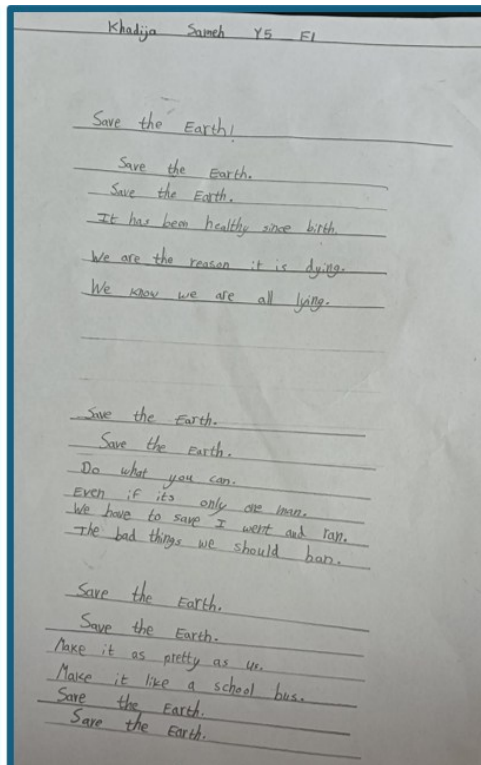 Khadija Sameh Y5 E1
Save the Earth!
Save the Earth.
Save the Earth.
It has been healthy since birth.
We are the reason it is dying.
We know we are all lying.
Save the Earth.
Save the Earth.
Do what you can.
Even if its only one man.
We have to save I went and ran.
The bad things we should ban.
Save the Earth.
Save the Earth.
Make it as pretty as us.
Make it like a school bus.
Save the Earth.
Save the Earth.